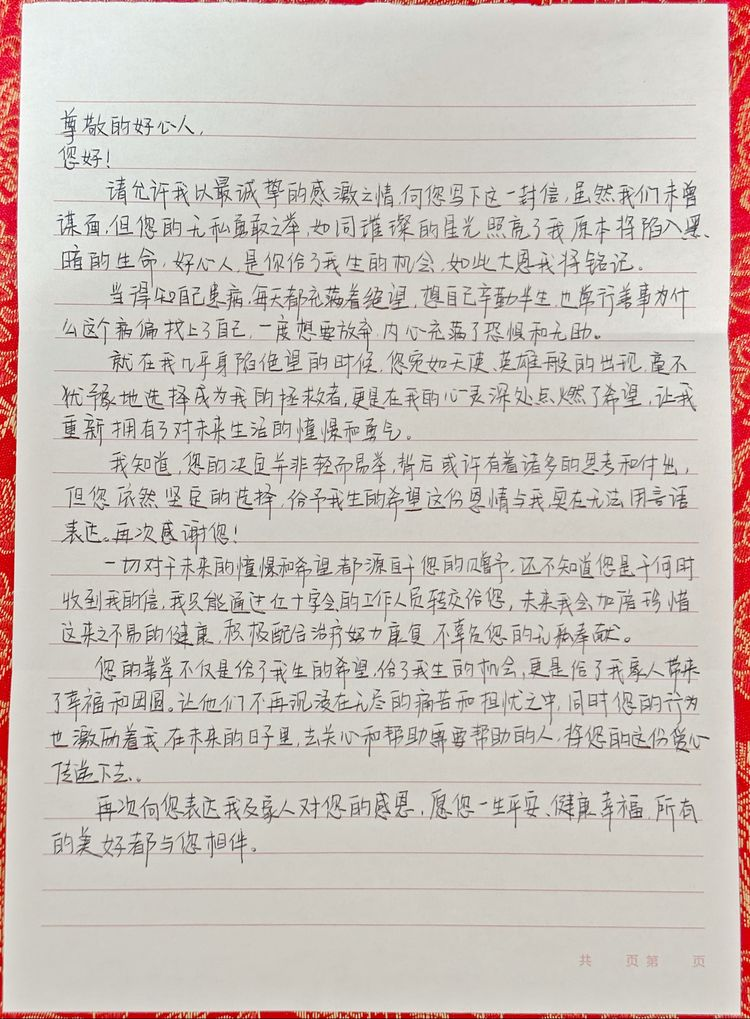 尊敬的好心人,
您好!
请允许我以最诚挚的感激之情,向您写下这一封信,虽然我们未曾
谋面,但您的无私勇敢之举,如同璀璨的星光照亮了我原本将陷入黑
暗的生命,好心人,是你给了我生的机会,如此大恩我将铭记。
当得知自己患病,每天都充满着绝望,想自己辛勤半生,也常行善事为什
么这个病偏找上了自己,一度想要放弃,内心充满了恐惧和无助。
就在我几乎身陷绝望的时候,您宛如天使、英雄般的出现,毫不
犹豫地选择成为我的拯救者,更是在我的心灵深处点燃了希望,让我
重新拥有了对未来生活的憧憬和勇气。
我知道,您的决定并非轻而易举,背后或许有着诸多的思考和付出,
但您依然坚定的选择,给予我生的希望这份恩情与我,实在无法用言语
表达。再次感谢您!
一切对于未来的憧憬和希望都源自于您的赠予,还不知道您是于何时
收到我的信,我只能通过红十字会的工作人员转交给您,未来我会加倍珍惜
这来之不易的健康,积极配合治疗好力康复,不辜负您的无私奉献。
您的善举不仅是给了我生的希望,给了我生的机会,更是给了我家人带来
了幸福和团圆。让他们不再沉浸在无尽的痛苦和担忧之中,同时您的行为
也激励着我,在未来的日子里,去关心和帮助需要帮助的人,将您的这份爱心
传递下去。
再次向您表达我及家人对您的感恩,愿您一生平安、健康幸福,所有
的美好都与您相伴。
共 页 第 页